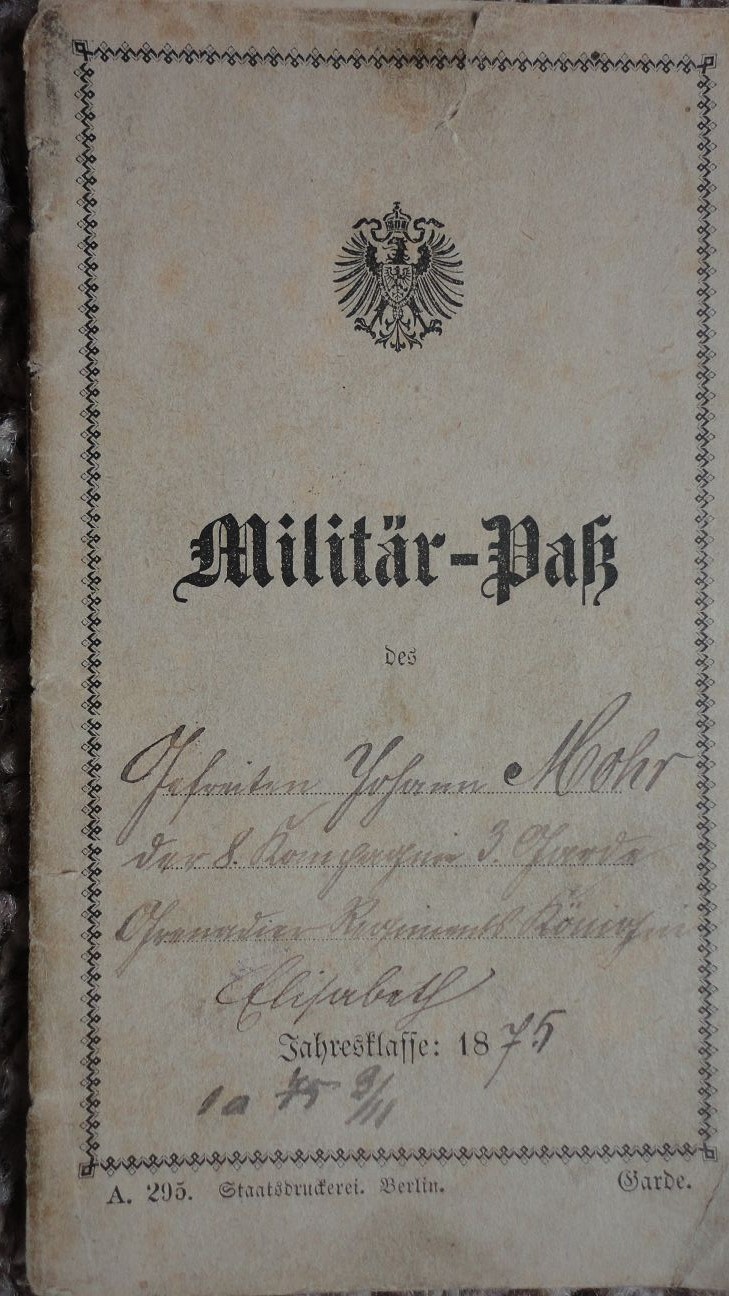 Militär-Paß
des
Gefreiten Johann Mohr
der 8. Kompagnie 3. Garde
Grenadier Regiments Königin
Elisabeth
Jahresklasse: 1875
A. 295. Staatsdruckerei. Berlin. Garde.